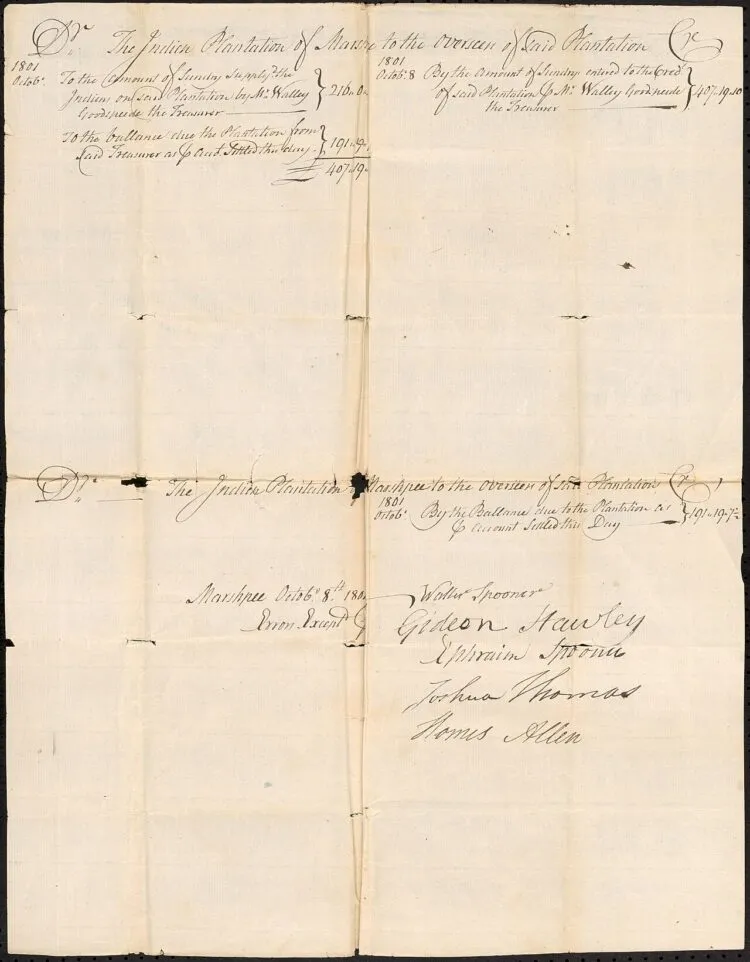 Dr. The Indien Plantation of Marshp to the overseers of Said Plantation Cr
1801
Octobr. To the amount of Sundry Supplyd the
Indiens on said Plantation by Mr. Walley
Goodspeede the Treasurer
216 . 0
To the ballance due the Plantation from
said Treasurer as pr Acct. Settled this day
191 . 19
407 . 19
1801
Octobr. 8 By the amount of Sundry entered to the Cred
of said Plantation pr Mr. Walley Goodspeede
the Treasurer
407 . 19 . 10
Dr. The Indien Plantation of Marshpee to the overseers of said Plantation Cr
1801
Octobr. By the Ballance due to the Plantation as
pr account Settled this Day
191 . 19 . 7
Marshpee Octobr. 8th. 1801
Errors Exceptd
Walter Spooner
Gideon Hawley
Ephraim Spooner
Joshua Thomas
Homes Allen